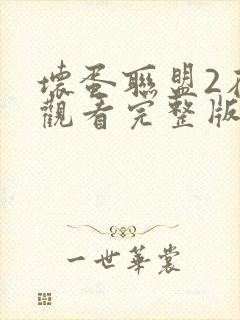 壞蛋聯盟2
觀看完整版
一世華裳